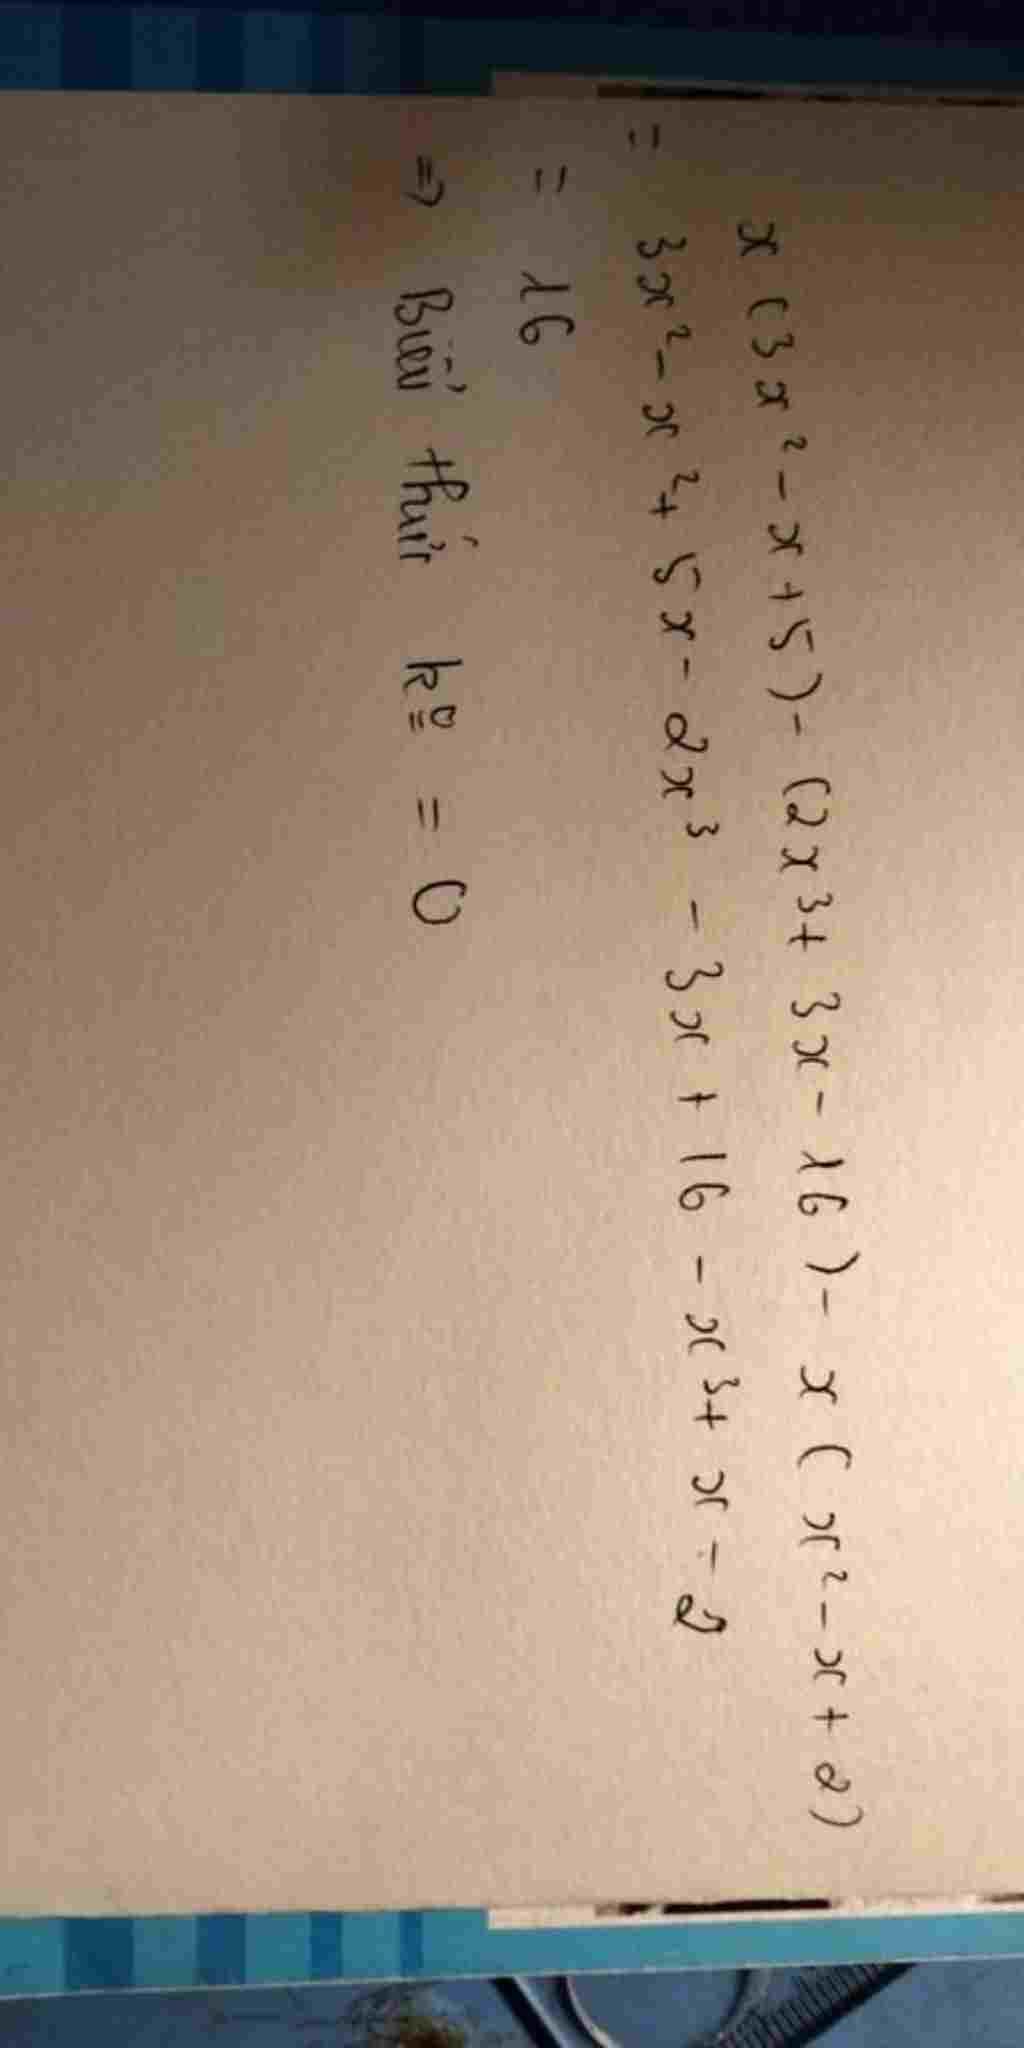 x(3x² - x + 5) - (2x³ + 3x - 16) - x(x² - x + 2)
= 3x² - x² + 5x - 2x³ - 3x + 16 - x³ + x - 2
= 16
=> Biểu thức kº = 0